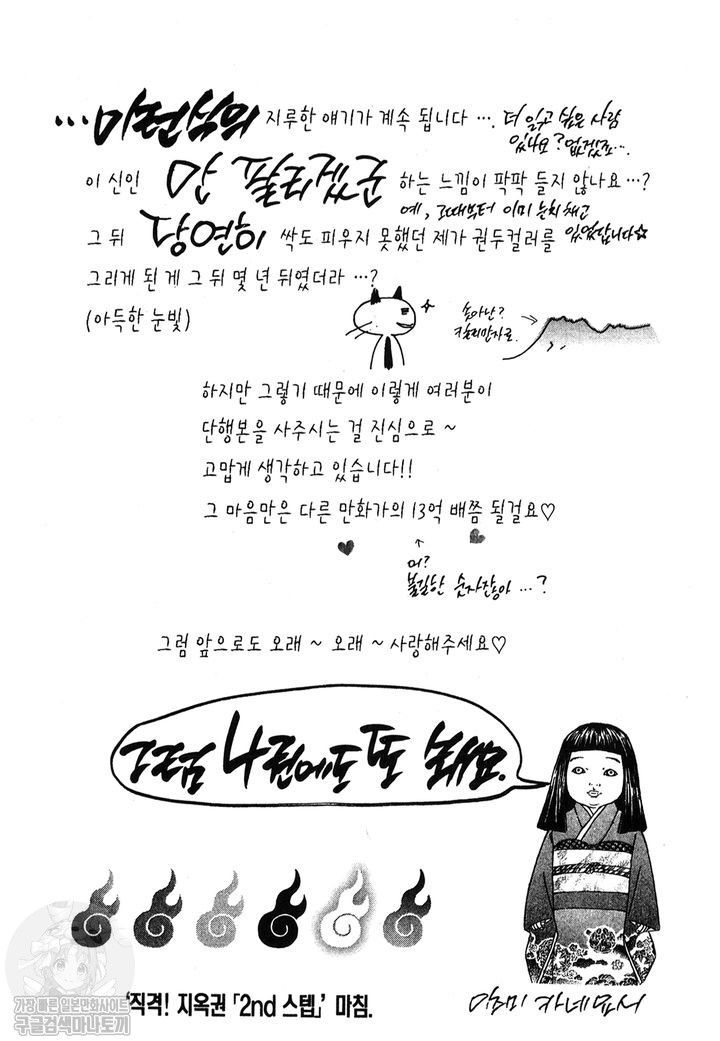 지루한 얘기가 계속 됩니다 …. 더 읽고 싶은 사람
있나요? 없겠죠….
이 신인 하는 느낌이 팍팍 들지 않나요 …?
예, 그때부터 이미 눈치채고
그 뒤 당연히 싹도 피우지 못했던 제가 권두컬러를 있었답니다☆
그리게 된 게 그 뒤 몇 년 뒤였더라 …?
(아득한 눈빛)
솟아난?
킬리만자로.
하지만 그렇기 때문에 이렇게 여러분이
단행본을 사주시는 걸 진심으로 ~
고맙게 생각하고 있습니다!!
그 마음만은 다른 만화가의 13억 배쯤 될걸요♡
머?
불길한 숫자잖아 …?
그럼 앞으로도 오래 ~ 오래 ~ 사랑해주세요♡
그럼 4권에도 또 봬요.
'직격! 지옥권 「2nd 스텝」' 마침.
가장 빠른 일본만화사이트
구글검색마나토끼